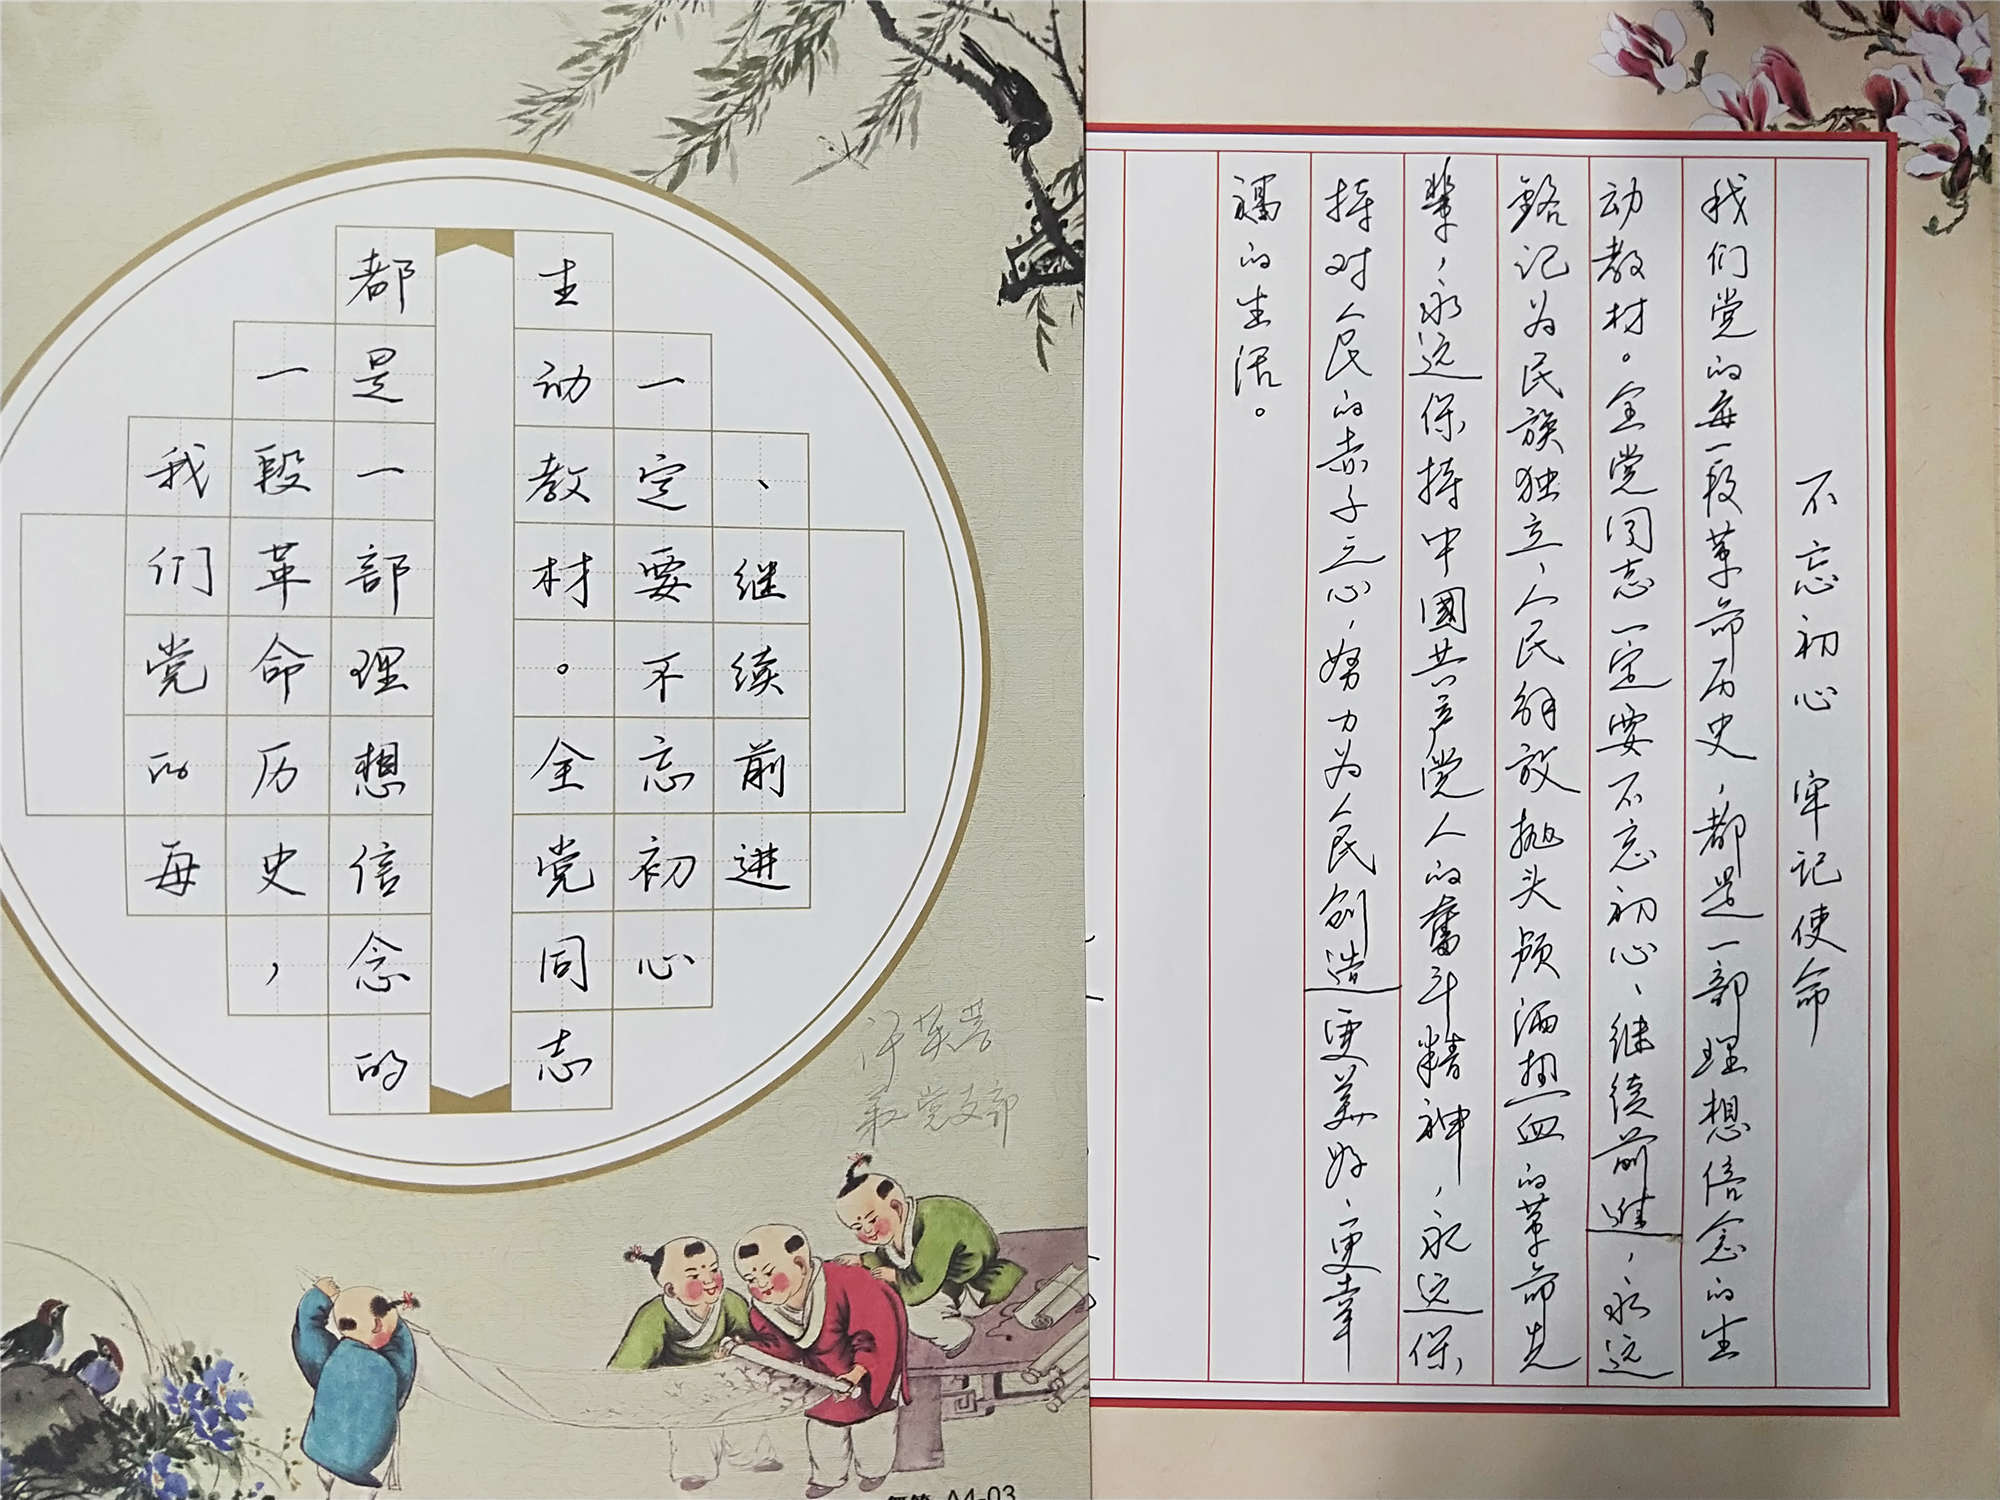 我们党的每
一段革命历史，
都是一部理想信念的
生动教材。全党同志
一定要不忘初心
、继续前进
党支部
A4-03
不忘初心 牢记使命
我们党的每一段革命历史，都是一部理想信念的生
动教材。全党同志一定要不忘初心、继续前进，永远
铭记为民族独立、人民解放抛头颅洒热血的革命先
辈，永远保持中國共产党人的奮斗精神，永远保
持对人民的赤子之心，努力为人民创造更美好、更幸
福的生活。